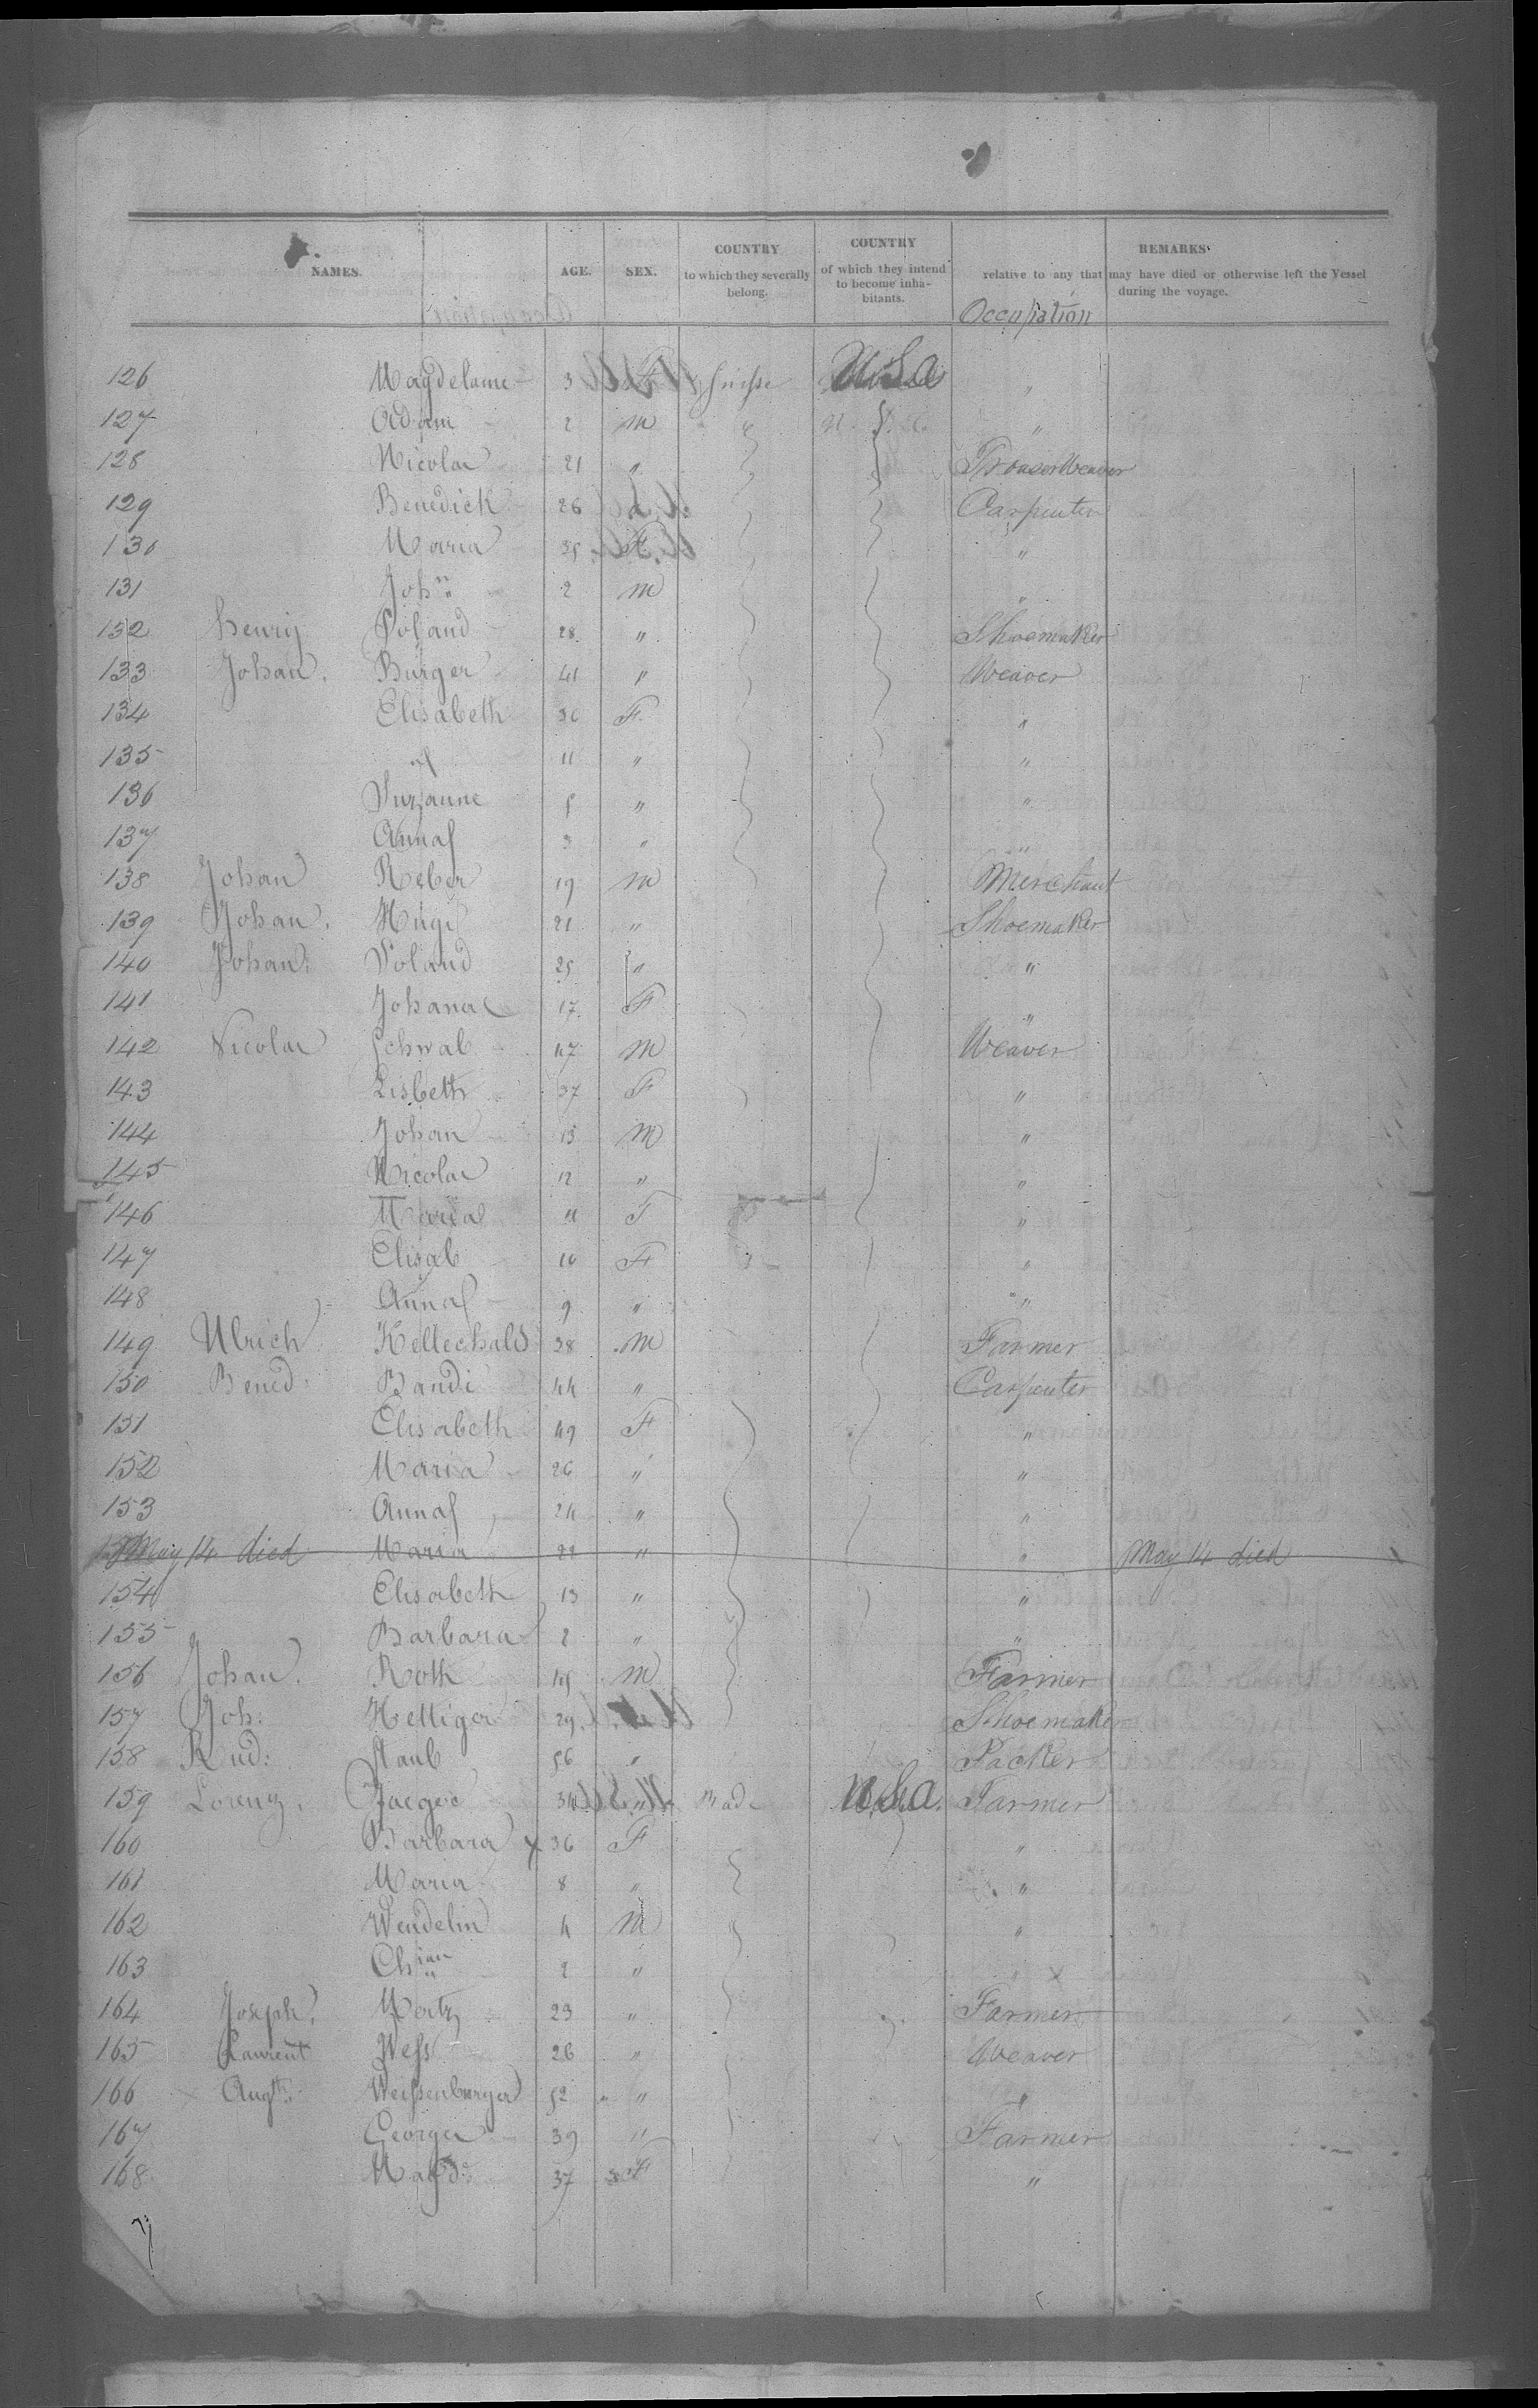 NAMES. AGE. SEX. COUNTRY to which they severally belong. COUNTRY of which they intend to become inhabitants. REMARKS relative to any that may have died or otherwise left the Vessel during the voyage.
Occupation
126 Magdelaine 3 F Suisse U.S.a "
127 Adam 2 m " "
128 Nicolas 21 "
129 Benedick 26 Carpenter
130 Maria F "
131 Johⁿ 2 m "
132 henry 28 " Shoemaker
133 Johan. Burger 41 " Weaver
134 Elisabeth 30 F "
135 11 " "
136 Suzanne 5 " "
137 Anna 3 " "
138 Johan Reber 19 m Merchant
139 Johan. Hugi 21 " Shoemaker
140 Johan. 25 " "
141 Johana 17 F "
142 Nicolas Schwab 47 M Weaver
143 Lisbeth 37 F "
144 Johan 13 M "
145 Nicolas 12 " "
146 Maria 11 F "
147 Elisab 10 F "
148 Anna 9 " "
149 Ulrich 38 M Farmer
150 Bened. Bandi 44 " Carpenter
151 Elisabeth 49 F "
152 Maria 26 " "
153 Anna 24 " "
May 14 died Maria 22 " " May 14 died
154 Elisabeth 13 " "
155 Barbara 2 " "
156 Johan. Roth M Farmer
157 Joh: Hettiger 29 Shoemaker
158 Rud: Staub 56 " Packer
159 Lorenz. Jaeger 34 " U.S.a. Farmer
160 Barbara x 36 F "
161 Maria 8 " "
162 Wendelin 4 M "
163 Chian 2 "
164 Joseph. Mertz 23 " Farmer
165 Laurent 26 " Weaver
166 Augt. Weissenburger 52 " "
167 George 39 " Farmer
168 Magd: 37 F "